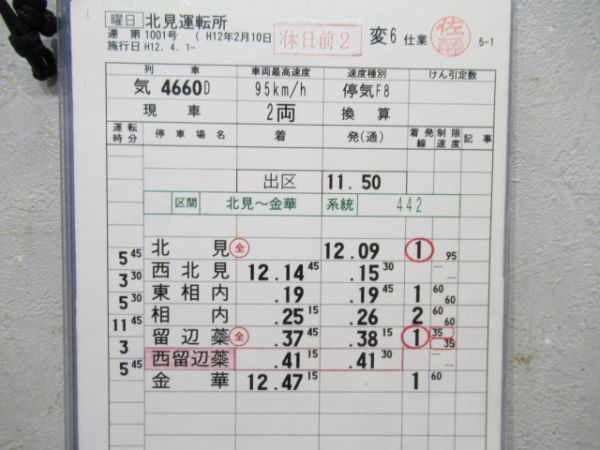 曜日 北見運転所
運 第1001号 ( H12年2月10日 休日前2 変6 仕業 佐藤 5-1
施行日H12. 4. 1-
列車 車両最高速度 速度種別 けん引定数
気 4660D 95km/h 停気F8
現車 2両 換算
運転時分 停車場名 着 発(通) 着発線 制限速度 記事
出区 11.50
区間 北見～金華 系統 442
北見 全 12.09 1 95
5 45
西北見 12.14 45 .15 30
3 30
東相内 .19 .19 45 1 60 60
5 30
相内 .25 15 .26 2 60 60
11 45
留辺蘂 全 .37 45 .38 15 1 35 35
3
西留辺蘂 .41 15 .41 30
5 45
金華 12.47 15 1 60